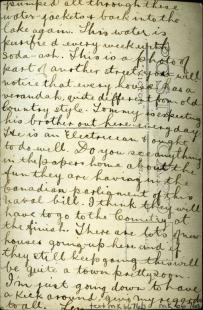 pumped all through these
water-jackets & back into the
lake again. This water is
purified every week with
Soda-ash. This is a photo of
part of another street you will
notice that every house has a
verandah, quite different from old
country style. Tommy is expecting
his brother out here every day
He is an Electrician & ought
to do well. Do you see anything
in the papers home about the
fun they are having in the
Canadian parliament of this
naval bill. I think they will
have to go to the Country at
the finish. There are lots of new
houses going up here and if
they still keep going this will
be quite a town pretty soon.
I'm just going down to have
a kick around, give my regards
to all.